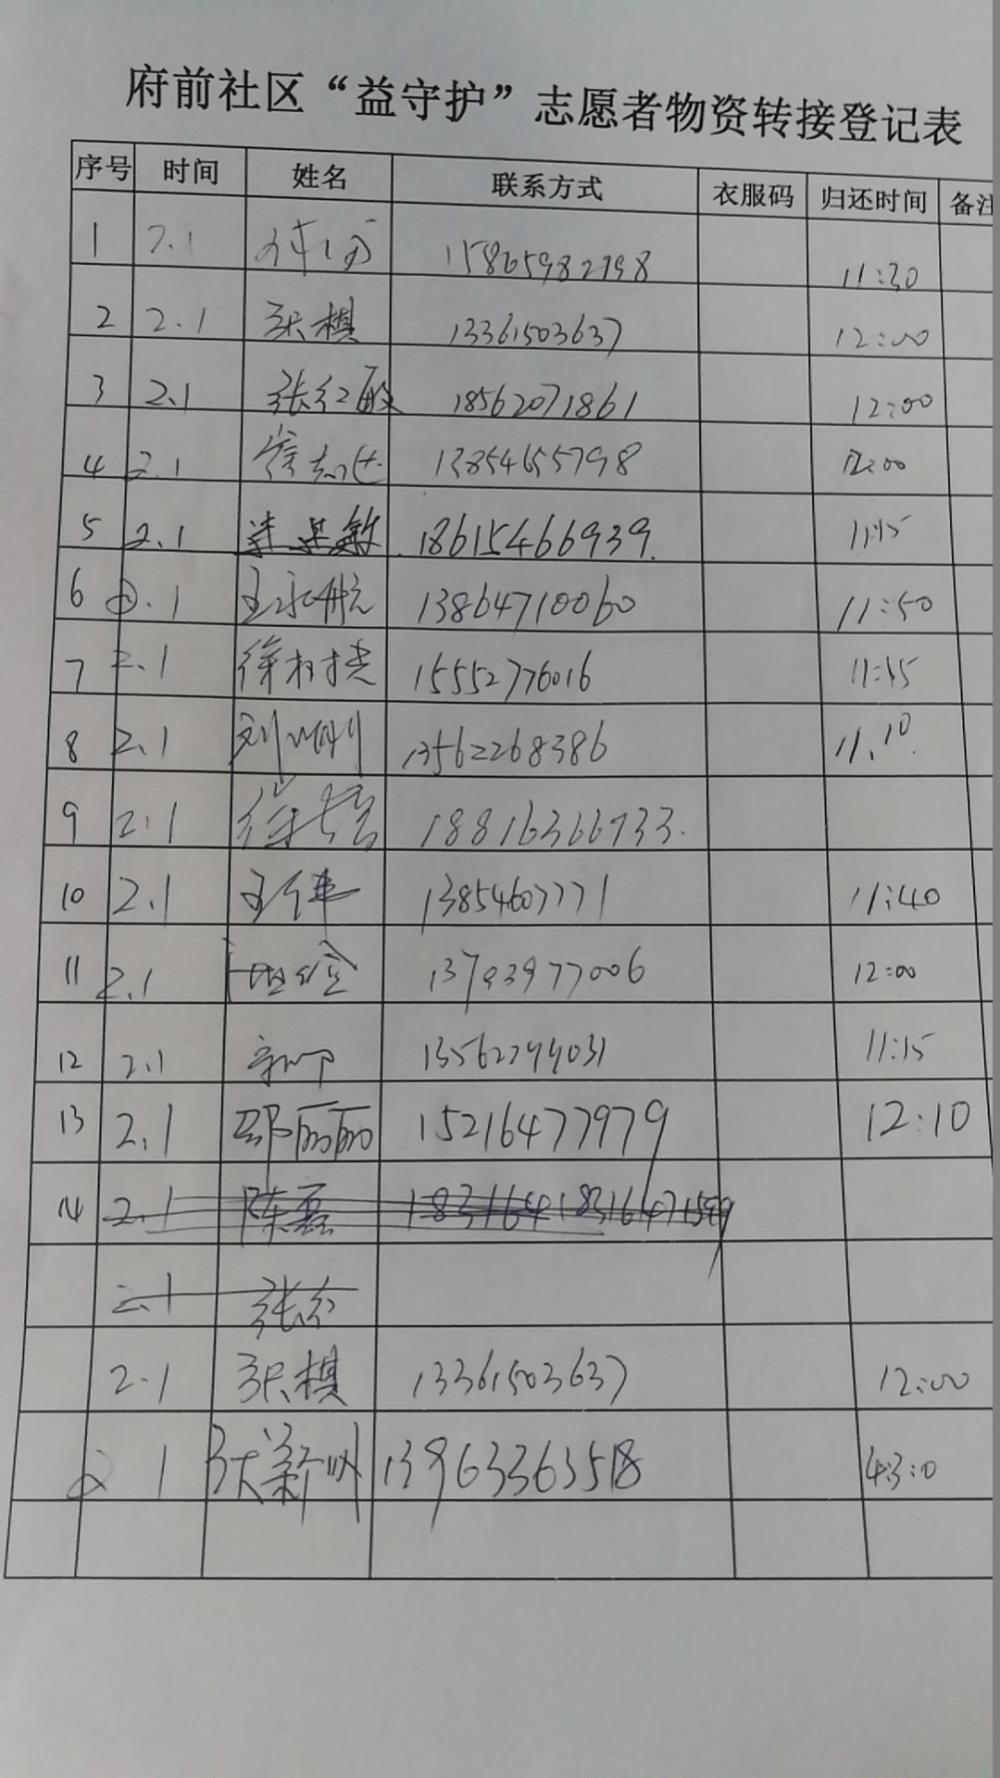 府前社区“益守护”志愿者物资转接登记表
序号 时间 姓名 联系方式 衣服码 归还时间 备注
1 2.1 15865982798 11:30
2 2.1 张棋 13361503637 12:00
3 2.1 张红敏 18562071861 12:00
4 2.1 13854655798 12:00
5 2.1 18615466939 11:45
6 2.1 王永航 13864710060 11:50
7 2.1 徐树杰 15552776016 11:45
8 2.1 13562268386 11.10
9 2.1 18816366733
10 2.1 王伟 13854607771 11:40
11 2.1 13793977006 12:00
12 2.1 13562799031 11:15
13 2.1 邵丽丽 15216477979 12:10
14 2.1 陈磊
2.1 张
2.1 张棋 13361503637 12:00
2 1 13963363518 4:3:0